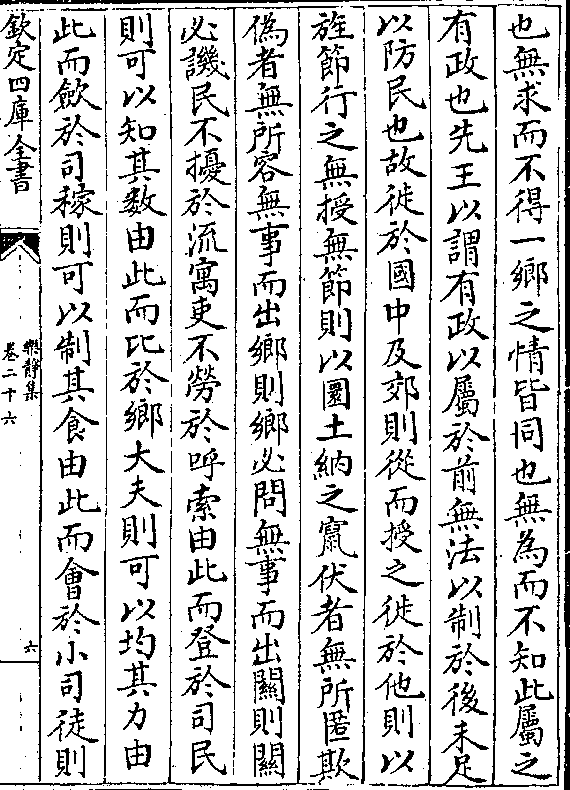 也無求而不得一鄉之情皆同也無為而不知此屬之
有政也先王以謂有政以屬於前無法以制於後未足
以防民也故徙於國中及郊則從而授之徙於他則以
旌節行之無授無節則以圜土納之竄伏者無所匿欺
偽者無所容無事而出鄉則鄉必問無事而出關則關
必譏民不擾於流寓吏不勞於呼索由此而登於司民
則可以知其數由此而比於鄉大夫則可以均其力由
此而斂於司稼則可以制其食由此而會於小司徒則
欽定四庫全書
樂靜集
卷二十六
六